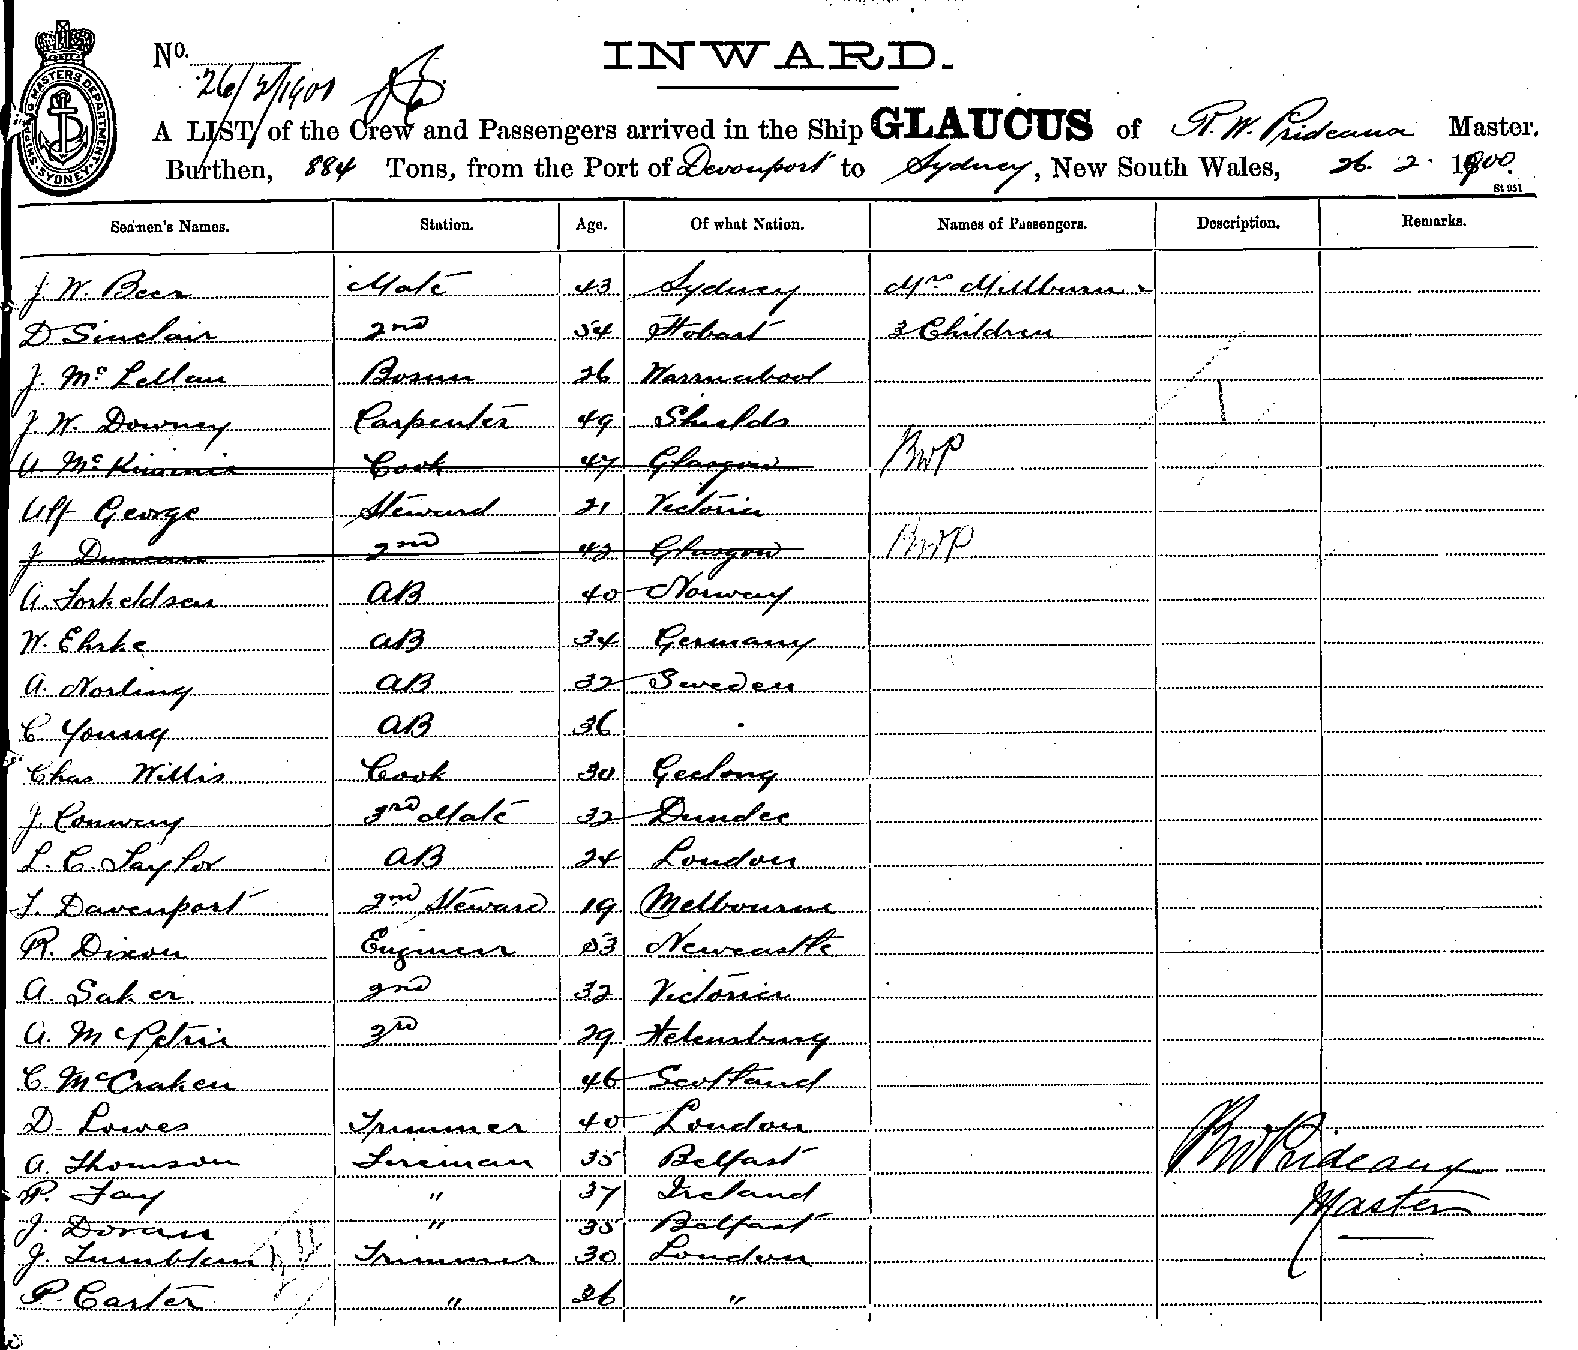 SHIPPING MASTERS DEPARTMENT. SYDNEY.
No.
26/2/1900
INWARD.
A LIST of the Crew and Passengers arrived in the Ship GLAUCUS of R. W. Prideaux Master.
Burthen, 884 Tons, from the Port of Devonport to Sydney, New South Wales, 26. 2. 1900.
St 951
Seamen's Names. Station. Age. Of what Nation. Names of Passengers. Description. Remarks.
J. W. Beer Mate 43 Sydney Mrs Millburn &
D Sinclair 2nd 54 Hobart 3 Children
J. Mc Lellan Bosun 26 Warrnabool
J. W. Downey Carpenter 49 Shields
A. McKimmie Cook 47 Glasgow RWP
Alf George Steward 21 Victoria
J Duncan 2nd 42 Glasgow RWP
A. Torkeldsen AB 40 Norway
W. Ehrke AB 34 Germany
A. Norling AB 32 Sweden
C Young AB 36
Chas Willis Cook 30 Geelong
J. Conway 3rd Mate 32 Dundee
L. C. Taylor AB 24 London
T. Davenport 2nd Steward 19 Melbourne
R. Dixon Engineer 53 Newcastle
A Saker 2nd 32 Victoria
A. McPetrie 3rd 29 Helensburg
C. McCraken 46 Scotland
D. Lowes Trimmer 40 London
A. Thomson Fireman 35 Belfast
P. Fay " 37 Ireland
J. Doran " 35 Belfast
J. Trimmer 30 London
P. Carter " 26 "
RW Prideaux
Master
24